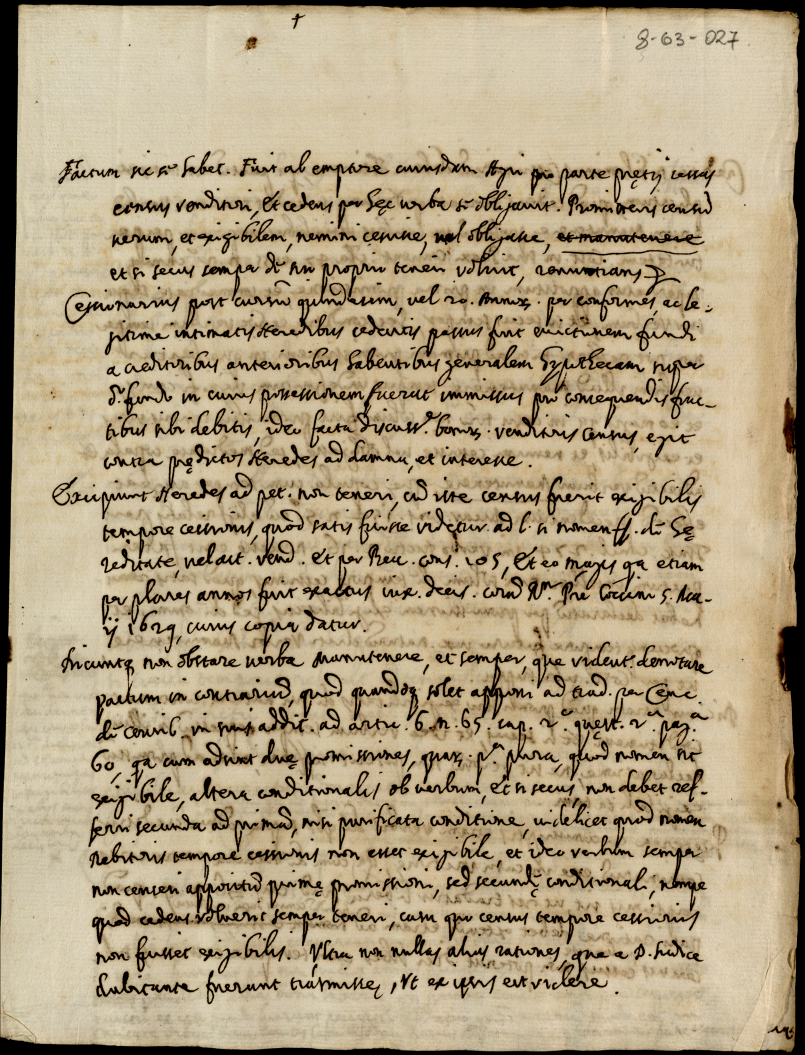 †
8-63-027
Factum sic se habet. Fuit ab emptore cuiusdam Agri pro parte pretij cessus
census venditori, et cedens per hęc verba se obligavit. Promittens censum
verum, et exigibilem, nemini cessisse, vel obligasse, et manutenere
et si secus semper de suo proprio teneri voluit, renuntians
Cessionarius post cursum quindecim, vel 20. Annorum. per conformes, ac le-
gitime intimatis Heredibus cedentis passus fuit evictionem fundi
a creditoribus anterioribus habentibus generalem hypothecam super
do. fundo in cuius possessionem fuerat immissus pro consequendis fruc-
tibus sibi debitis, ideo facta discuss.e bonor. venditoris census, egit
contra prędictos Heredes ad damna, et interesse.
Excipiunt Heredes ad pet. non teneri, cum iste census fuerit exigibilis
tempore cessionis, quod satis fuisse videtur ad l. si nomen ff. de hę
reditate, vel act. vend. et per Rev. cons. 105, Et eo magis qa etiam
per plures annos fuit exactus iux. decis. coram R. P. Coccino 5. Ma-
ij 1629, cuius copia datur.
Dicuntq non obstare verba Manutenere, et semper, que vident. denotare
pactum in contrarium, quod quandoq solet apponi ad trad. per Cenc.
de censib. in suis addit. ad artic. 6. n. 65. cap. 2.o quęst. 2.a pag.a
60, qa cum adsint duę promissiones, quar. p.a pura, quod nomen sit
exigibile, altera conditionalis ob verbum, et si secus, non debet ref-
ferri secunda ad primam, nisi purificata conditione, videlicet quod nomen
debitoris tempore cessionis non esset exigibile, et ideo verbum semper
non censeri appositum primę promissioni, sed secundę conditionali, nempe
quod cedens voluerit semper teneri, casu quo census tempore cessionis
non fuisset exigibilis. Ultra non nullas alias rationes, que a D. Iudice
dubitante fuerunt trasmissę, Ut ex ipsis est videre.